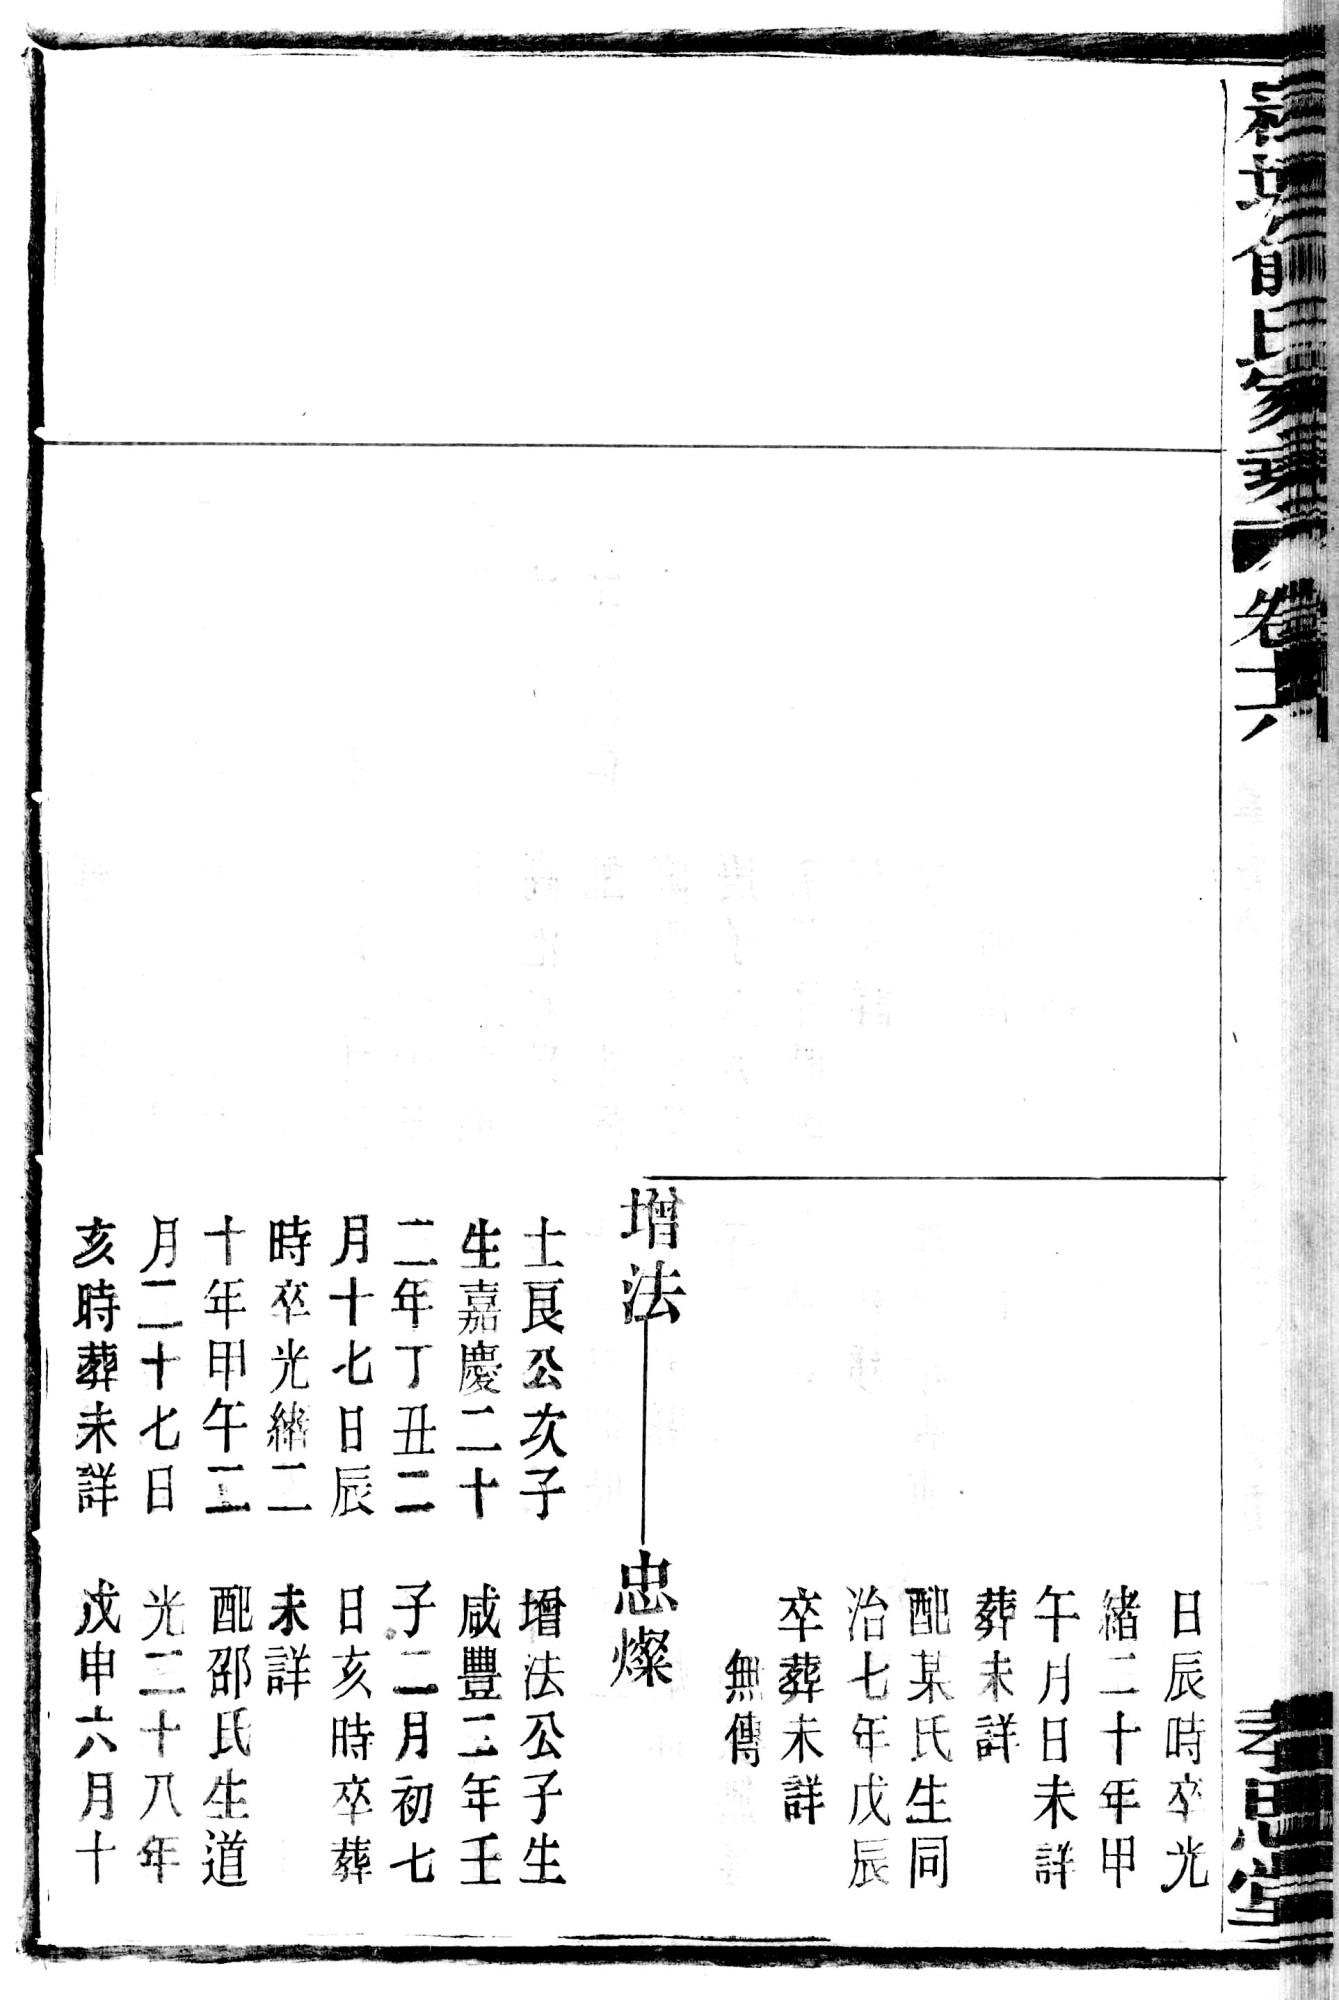 氏家乘
卷十六
孝思堂
日辰時卒光
緒二十年甲
午月日未詳
葬未詳
配某氏生同
治七年戊辰
卒葬未詳
無傳
增法
士艮公次子
生嘉慶二十
二年丁丑二
月十七日辰
時卒光緒二
十年甲午二
月二十七日
亥時葬未詳
忠燦
增法公子生
咸豐二年壬
子二月初七
日亥時卒葬
未詳
配邵氏生道
光二十八年
戊申六月十